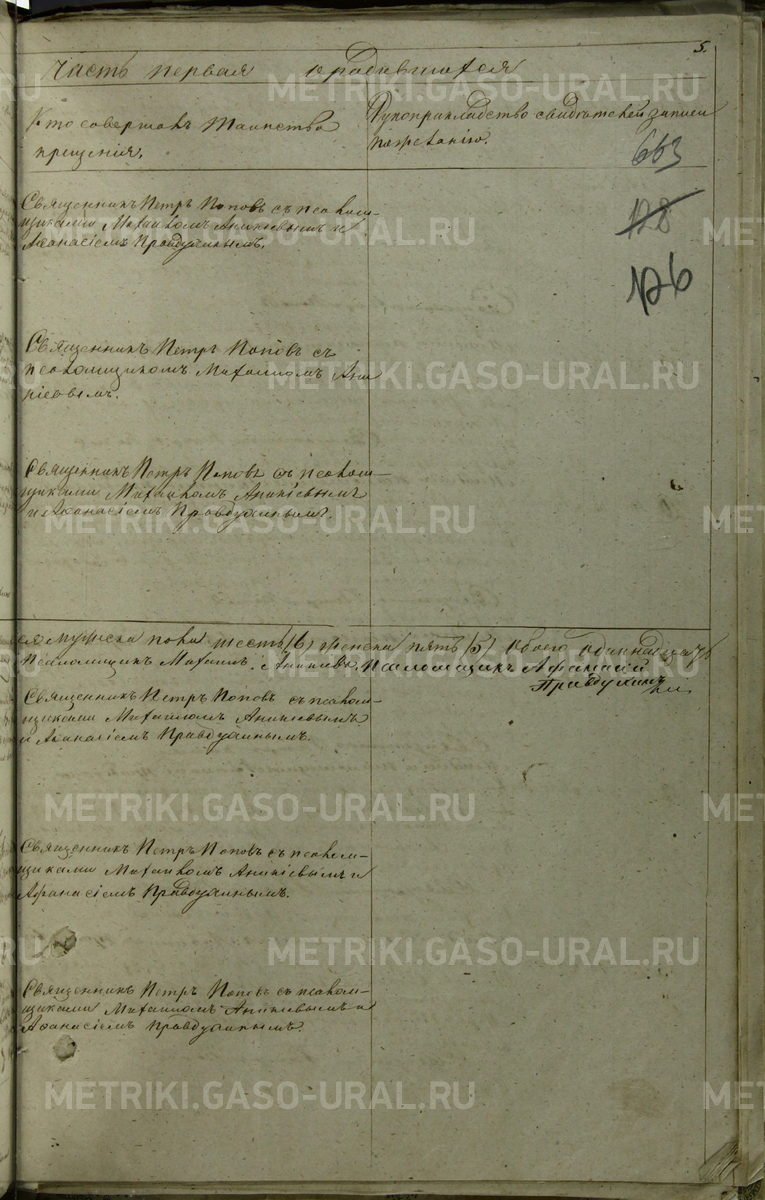 5.
Часть первая о родившихся
Кто совершалъ таинство
крещенія.
Рукоприкладство свидѣтелей записи
по желанію.
663
128
126
Священникъ Петръ Поповъ съ псалом-
щиками Михаиломъ Аникіевымъ и
Аѳанасіемъ Правдухинымъ.
Священникъ Петръ Поповъ съ
псаломщикомъ Михаиломъ Ани-
кіевымъ.
Священникъ Петръ Поповъ съ псалом-
щиками Михаиломъ Аникіевымъ
и Аѳанасіемъ Правдухинымъ.
ся мужеска пола шесть (6) женска пять (5) обоего одиннадцать
Псаломщикъ Михаилъ Аникіевъ Псаломщикъ Афанасій
Правдухинъ
Священникъ Петръ Поповъ съ псалом-
щиками Михаиломъ Аникіевымъ
и Аѳанасіемъ Правдухинымъ.
Священникъ Петръ Поповъ съ псалом-
щиками Михаиломъ Аникіевымъ и
Афанасіемъ Правдухинымъ.
Священникъ Петръ Поповъ съ псалом-
щиками Михаиломъ Аникіевымъ и
Аѳанасіемъ Правдухинымъ.
METRIKI.GASO-URAL.RU